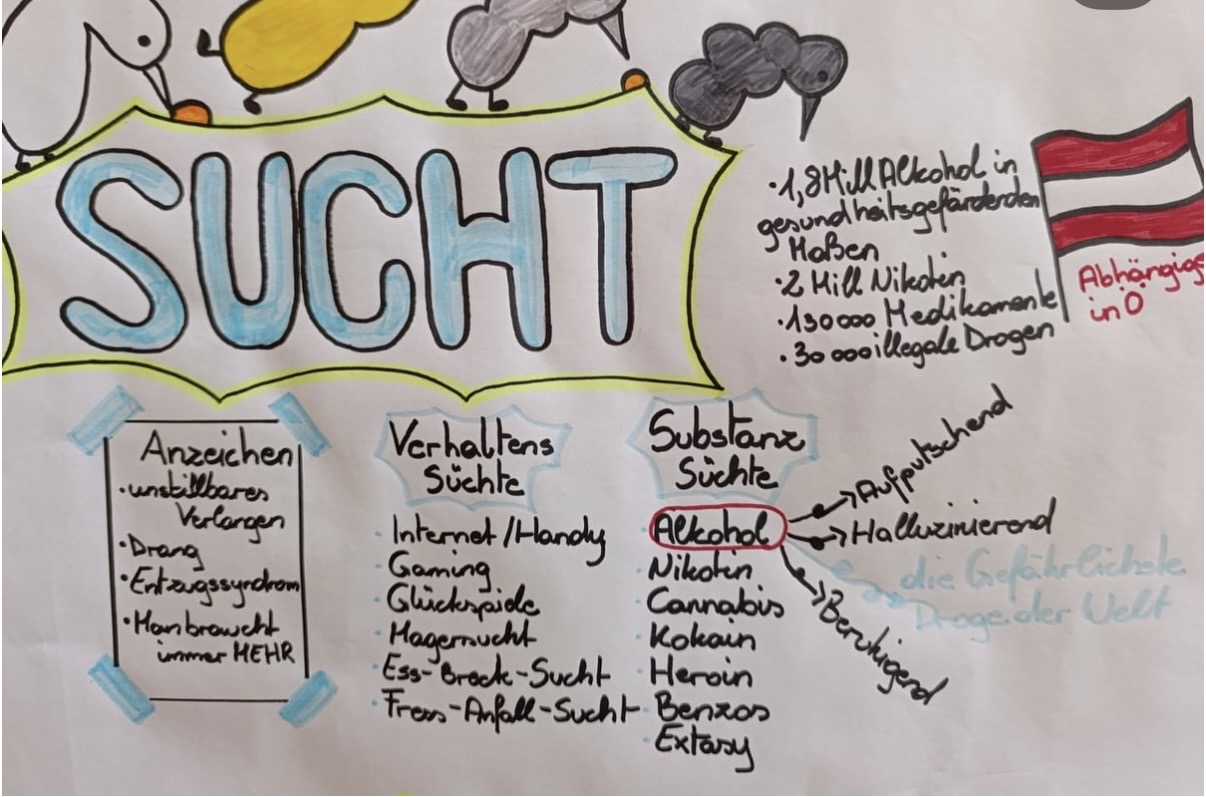 SUCHT
·1,8 Mill Alkohol in
gesundheitsgefärdenden
Maßen
·2 Mill Nikotin
·130000 Medikamente
·30000 illegale Drogen
Abhängige
in Ö
Anzeichen
·unstillbares
Verlangen
·Drang
·Entzugssyndrom
·Man braucht
immer MEHR
Verhaltens
Süchte
·Internet/Handy
·Gaming
·Glücksspiele
·Magersucht
·Ess-Brech-Sucht
·Fress-Anfall-Sucht
Substanz
Süchte
·Alkohol
·Nikotin
·Cannabis
·Kokain
·Heroin
·Benzos
·Extasy
Aufputschend
Halluzinierend
die Gefährlichste
Droge der Welt
Beruhigend